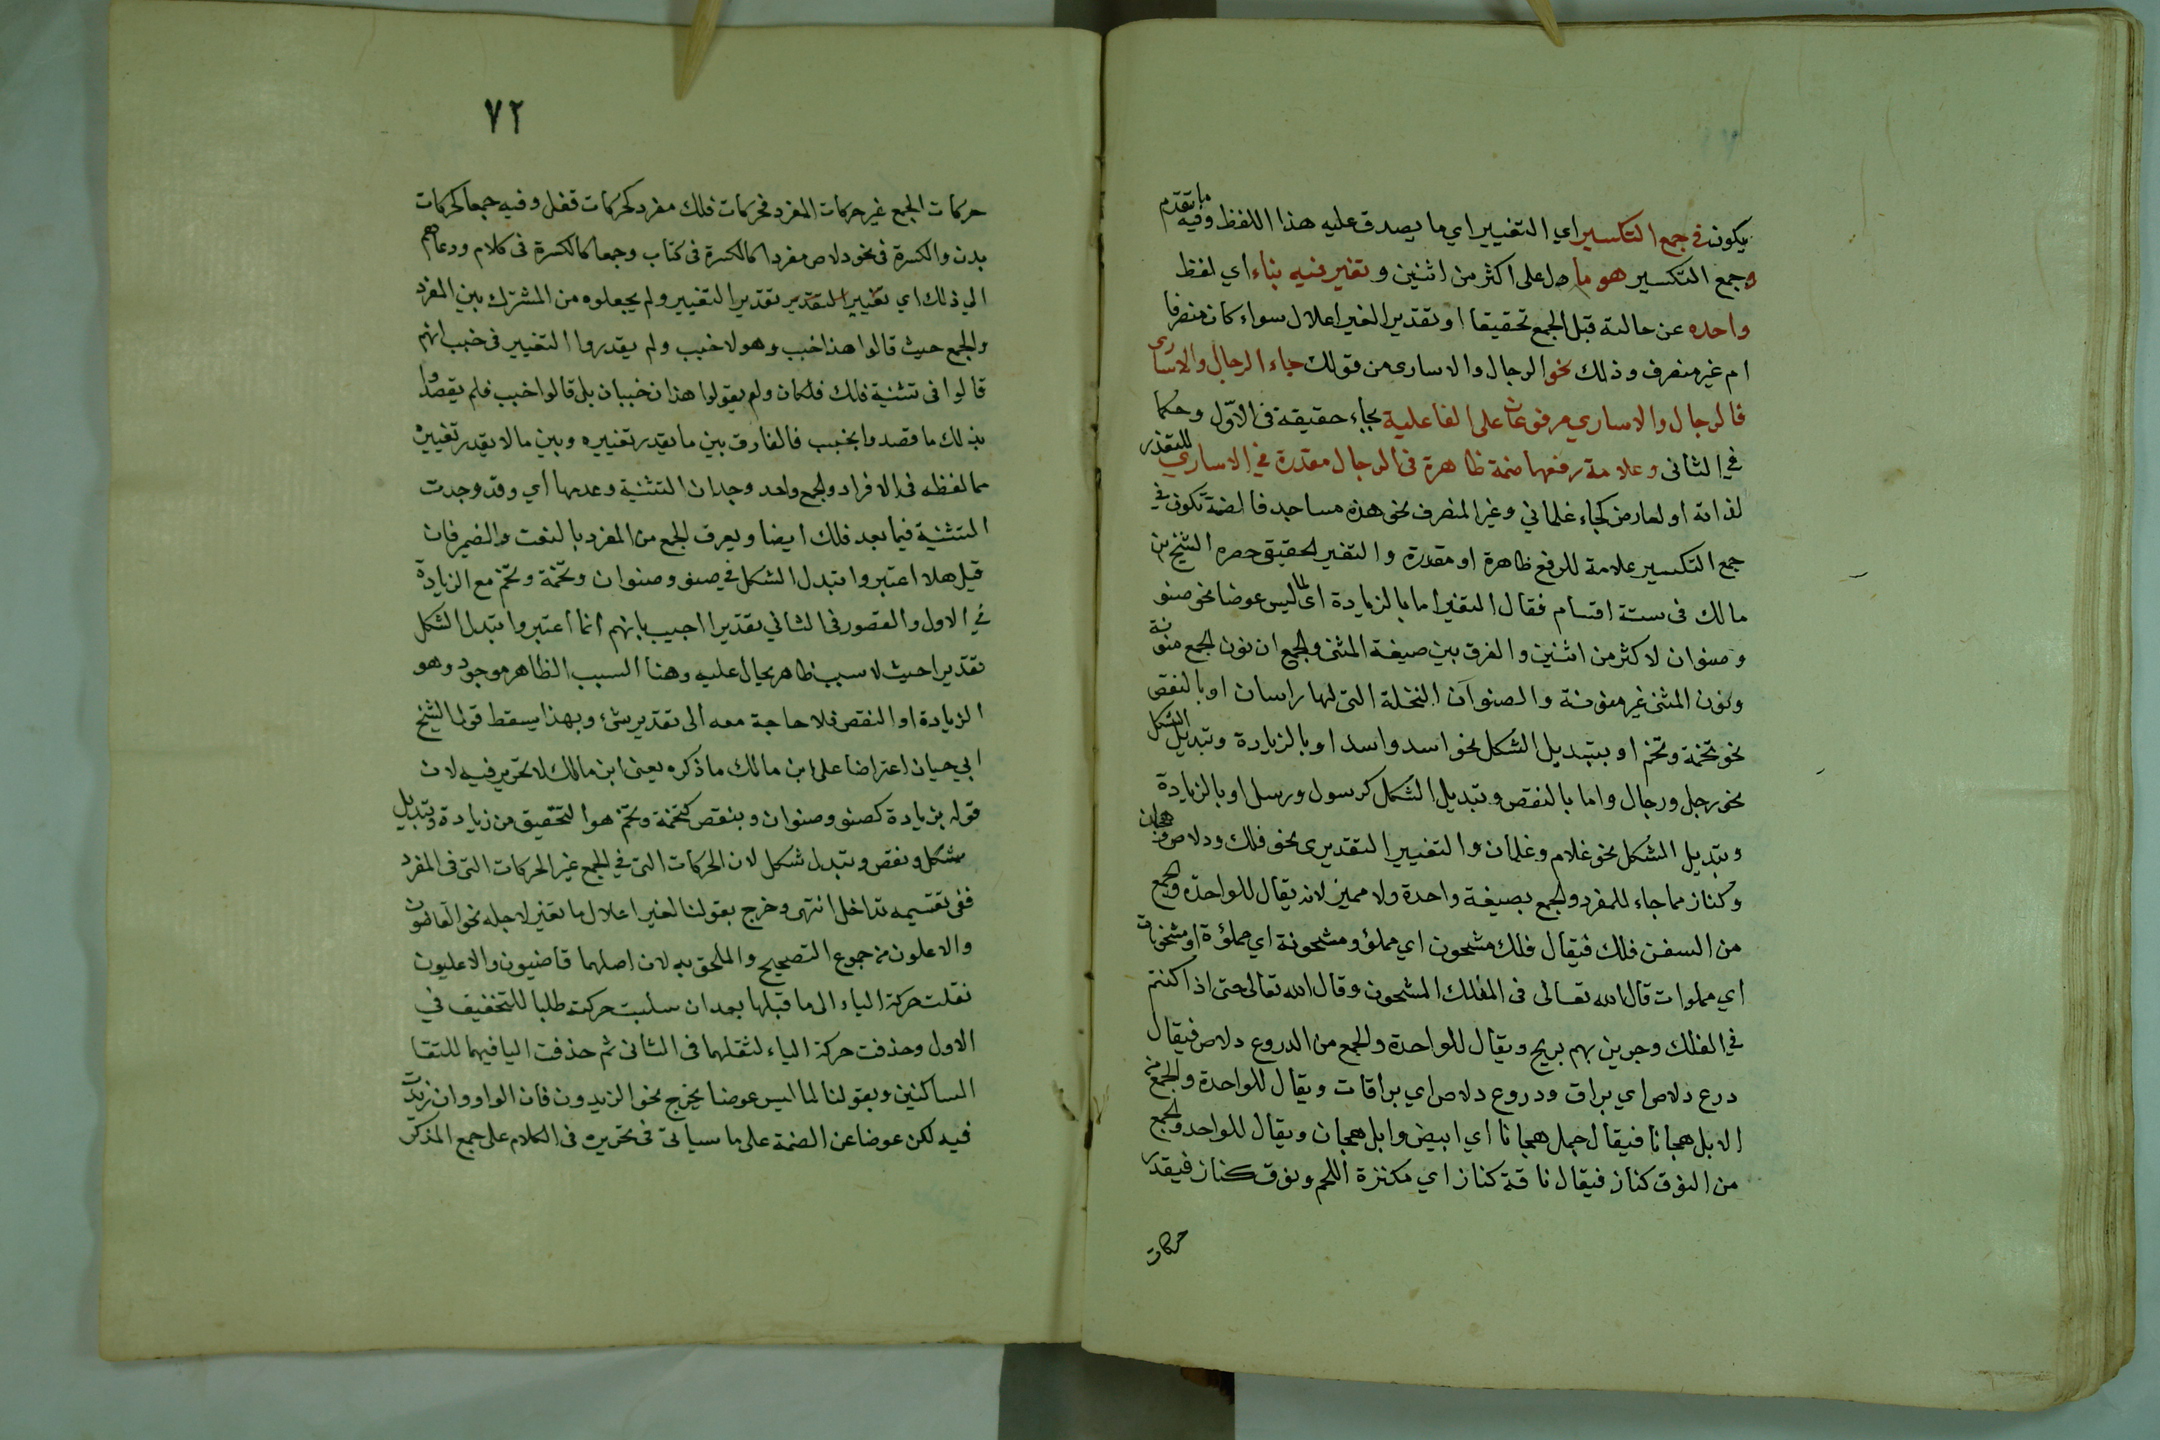 يكون في جمع التكسير اي التغيير اي ما يصدق عليه هذا اللفظ وفيه ما تقدم
وجمع التكسير هو ما دل على اكثر من اثنين و تغير فيه بناء اي لفظ
واحده عن حالته قبل الجمع تحقيقا او تقديرا لغير اعلال سواء كان منصرفا
ام غير منصرف وذلك نحو الرجال والاسارى من قولك جاء الرجال والاسارى
فالرجال والاسارى مرفوعان على الفاعلية بجاء حقيقة في الاول وحكما
في الثاني وعلامة رفعهما ضمة ظاهرة في الرجال مقدرة في الاسارى للتعذر
لذاته او لعارض كجاء غلماني وغير المنصرف نحو هذه مساجد فالضمة تكون في
جمع التكسير علامة للرفع ظاهرة او مقدرة والتغير الحقيقي حصره الشيخ بن
مالك في ستة اقسام فقال التغير اما بالزيادة اي لما ليس عوضا نحو صنو
وصنوان لاكثر من اثنين والفرق بين صيغة المثنى والجمع ان نون الجمع منونة
ونون المثنى غير منونة والصنوان النخلة التي لها راسان او بالنقص
نحو تخمة وتخم او بتبديل الشكل نحو اسد واسد او بالزيادة وتبديل الشكل
نحو رجل ورجال واما بالنقص وتبديل الشكل كرسول ورسل او بالزيادة
وتبديل الشكل نحو غلام وغلمان والتغيير التقديري نحو فلك ودلاص وهجان
وكناز مما جاء للمفرد والجمع بصيغة واحدة ولا مميز لانه يقال للواحدة والجمع
من السفن فلك فيقال فلك مشحون اي مملؤ ومشحونة اي مملؤة او مشحونات
اي مملوات قال الله تعالى في الفلك المشحون وقال الله تعالى حتى اذا كنتم
في الفلك وجرين بهم بريح ويقال للواحدة والجمع من الدروع دلاص فيقال
درع دلاص اي براق ودروع دلاص اي براقات ويقال للواحدة والجمع من
الابل هجانا فيقال جمل هجانا اي ابيض وابل هجان ويقال للواحد والجمع
من النوق كناز فيقال ناقة كناز اي مكنزة اللحم ونوق كناز فيقدر
حركات
٧٢
حركات الجمع غير حركات المفرد فحركات فلك مفرد كحركات قفل وفيه جمعا كحركات
بدن والكسرة في نحو دلاص مفردا كالكسرة في كتاب وجمعا كالكسرة في كلام ودعاهم
الي ذلك اي تغيير التقدير تقدير التغيير ولم يجعلوه من المشترك بين المفرد
والجمع حيث قالوا هذا خبب وهولا خبب ولم يقدروا التغيير في خبب انهم
قالوا في تثنية فلك فلكان ولم يقولوا هذان خببان بل قالوا خبب فلم يقصدوا
بذلك ما قصدوا بخبب فالفارق بين ما يقدر تغييره وبين ما لا يقدر تغييره
مما لفظه في الافراد والجمع واحد وجدان التثنية وعدمها اي وقد وجدت
التثنية فيما بعد فلك ايضا ويعرف الجمع من المفرد بالنعت والضمير فان
قيل هلا اعتبروا تبدل الشكل في صنو وصنوان وتخمة وتخم مع الزيادة
في الاول والقصور في الثاني تقديرا اجيب بانهم انما اعتبروا تبديل الشكل
تقديرا حيث لا سبب ظاهر يحال عليه وهنا السبب الظاهر موجود وهو
الزيادة او النقص فلا حاجة معه الى تقدير شئ وبهذا يسقط قول الشيخ
ابي حيان اعتراضا على ابن مالك ما ذكره يعني ابن مالك لا تحرير فيه لان
قوله بزيادة كصنو وصنوان وبنقص كتخمة وتخم هوا لتحقيق من زيادة وتبديل
شكل ونقص وتبدل شكل لان الحركات التي في الجمع غير الحركات التي في المفرد
ففي تقسيمه تداخل انتهى وخرج بقولنا لغير اعلال ما تغير لاجله نحو القاضون
والاعلون من جموع التصحيح والملحق به لان اصلهما قاضيون والاعليون
نقلت حركة الياء الى ما قبلها بعد ان سلبت حركته طلبا للتخفيف في
الاول وحذفت حركة الياء لثقلهما في الثاني ثم حذفت اليا فيهما للتقا
الساكنين وبقولنا لما ليس عوضا يخرج نحو الزيدون فان الواو وان زيدت
فيه لكن عوضا عن الضمة على ما سيأتي في تحريره في الكلام على جمع المذكر